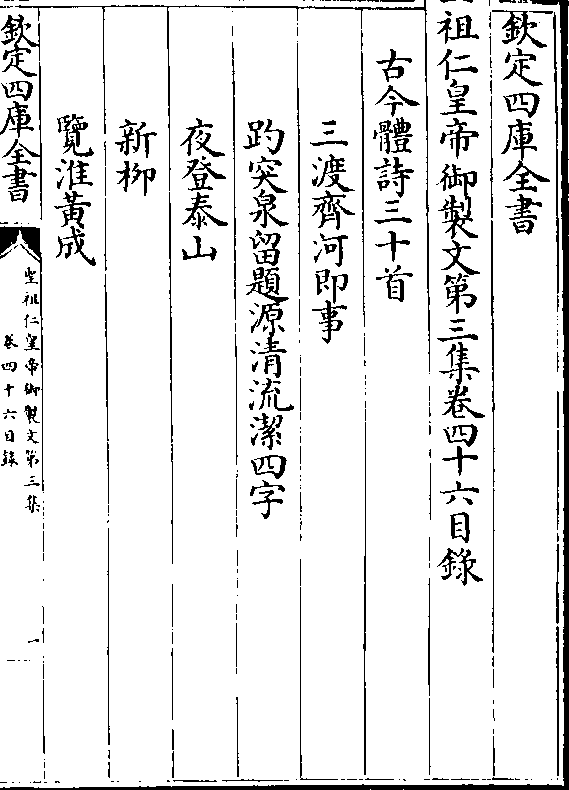 欽定四庫全書
祖仁皇帝御製文第三集卷四十六目錄
古今體詩三十首
三渡齊河即事
趵突泉留題源清流潔四字
夜登泰山
新柳
覽淮黃成
欽定四庫全書
聖祖仁皇帝御製文第三集
卷四十六目錄
一